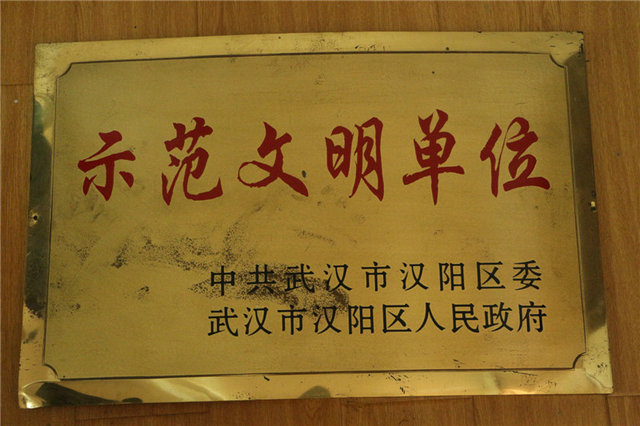 示范文明单位
中共武汉市汉阳区委
武汉市汉阳区人民政府